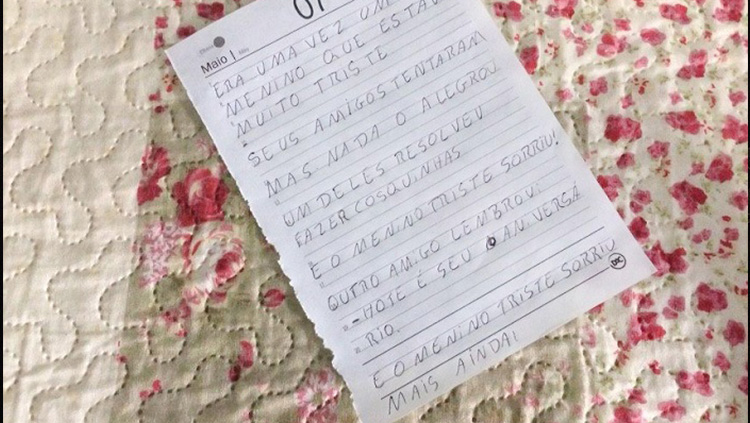 Maio
ERA UMA VEZ UM
MENINO QUE ESTAV
MUITO TRISTE
SEUS AMIGOS TENTARAM
MAS NADA O ALEGROU
UM DELES RESOLVEU
FAZER COSQUINHAS
E O MENINO TRISTE SORRIU!
OUTRO AMIGO LEMBROU:
- HOJE É SEU ANIVERSÁ
RIO.
E O MENINO TRISTE SORRIU
MAIS AINDA!